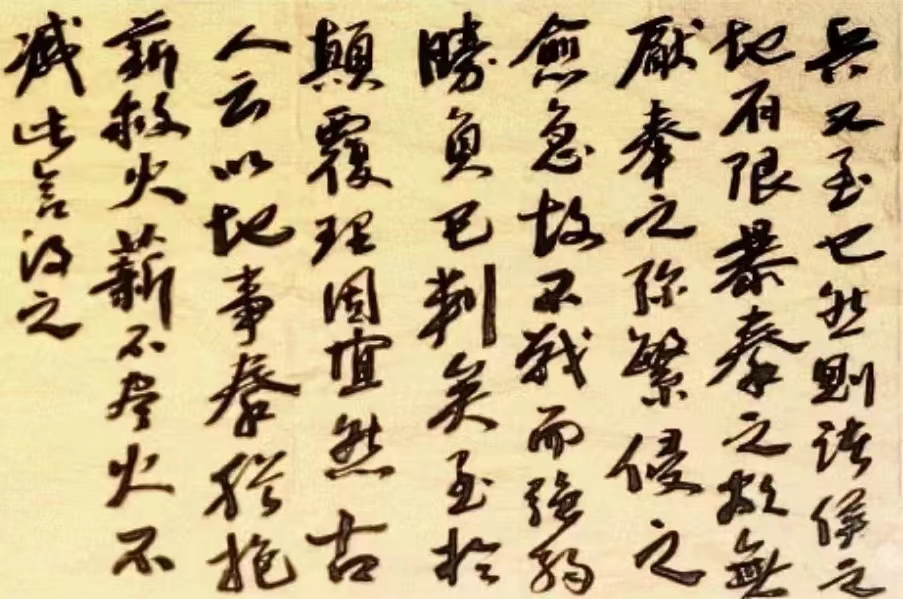 兵又至已然则诸侯之
地有限暴秦之欲無
厭奉之弥繁侵之
愈急故不戰而强弱
勝負已判矣至於
顛覆理固宜然古
人云以地事秦猶抱
薪救火薪不尽火不
滅此言得之